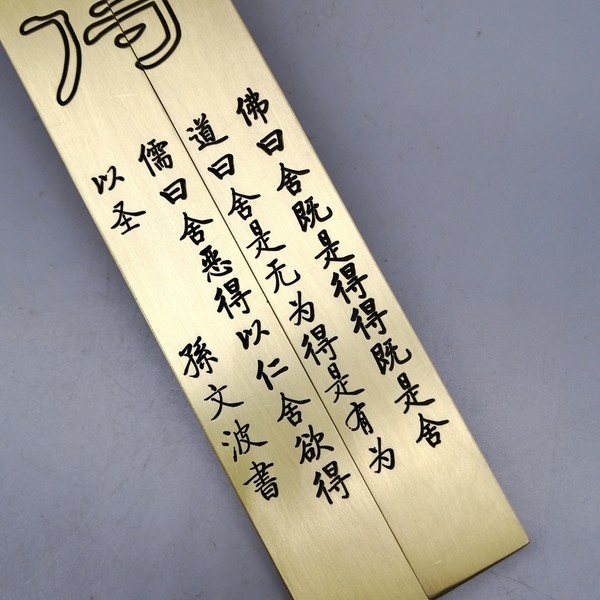 得
佛曰舍既是得得既是舍
道曰舍是无为得是有为
儒曰舍恶得以仁舍欲得
以圣
孫文波書